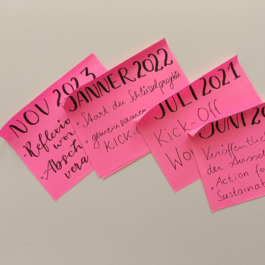 NOV 2023
• Reflexio
wor
• Absch
vera
JÄNNER 2022
Start der Schlüsselprojekte
gemeinsamer
KICK-
JULI 2021
Kick-Off
Wor
JUNI 20
Veröffentlich
der Aussch
• Action fo
Sustaina